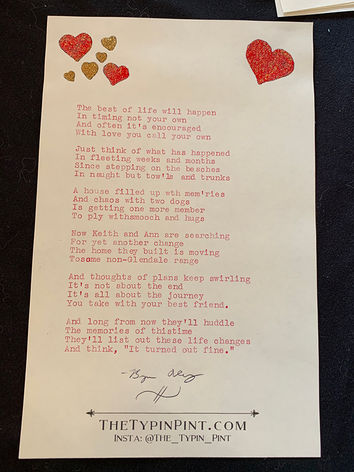 The best of life will happen
In timing not your own
And often it's encouraged
With love you call your own
Just think of what has happened
In fleeting weeks and months
Since stepping on the beaches
In naught but tow'ls and trunks
A house filled up wth mem'ries
And chaos with two dogs
Is getting one more member
To ply withsmooch and hugs
Now Keith and Ann are searching
For yet another change
The home they built is moving
Tosome non-Glendale range
And thoughts of plans keep swirling
It's not about the end
It's all about the journey
You take with your best friend.
And long from now they'll huddle
The memories of thistime
They'll list out these life changes
And think, "It turned out fine."
TheTypinPint.com
Insta: @The_Typin_Pint